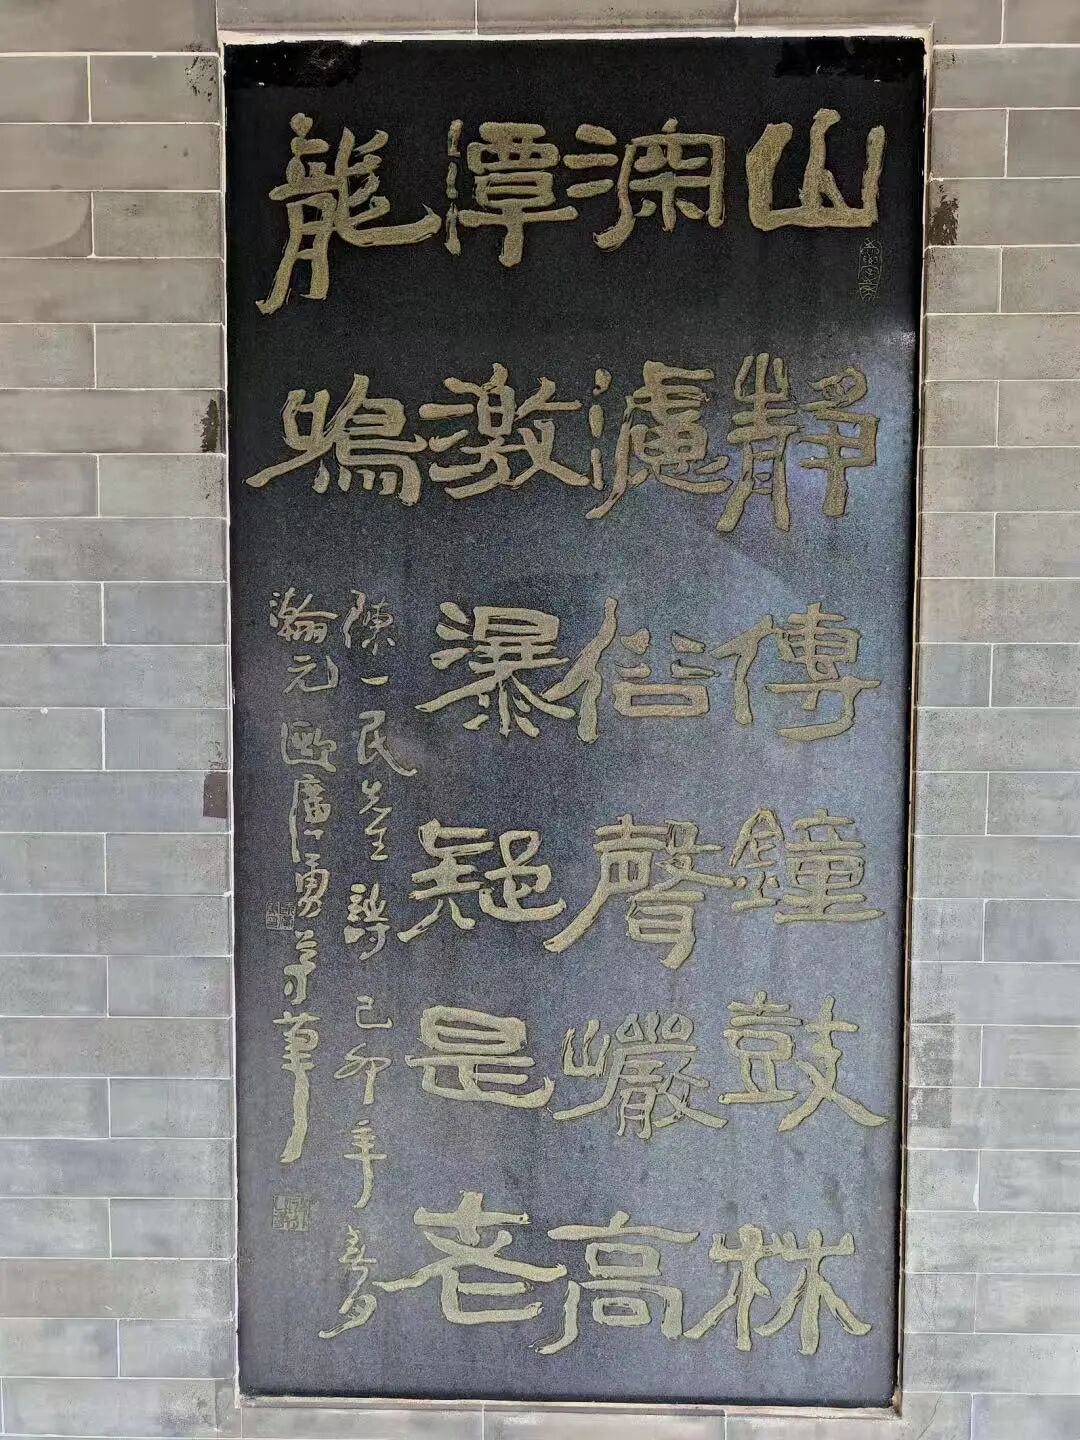 山靜傳鐘鼓林
深濾俗聲巖高
潭激瀑疑是老
龍鳴
陳一民先生詩己卯年春月
瀚元歐廣勇並筆